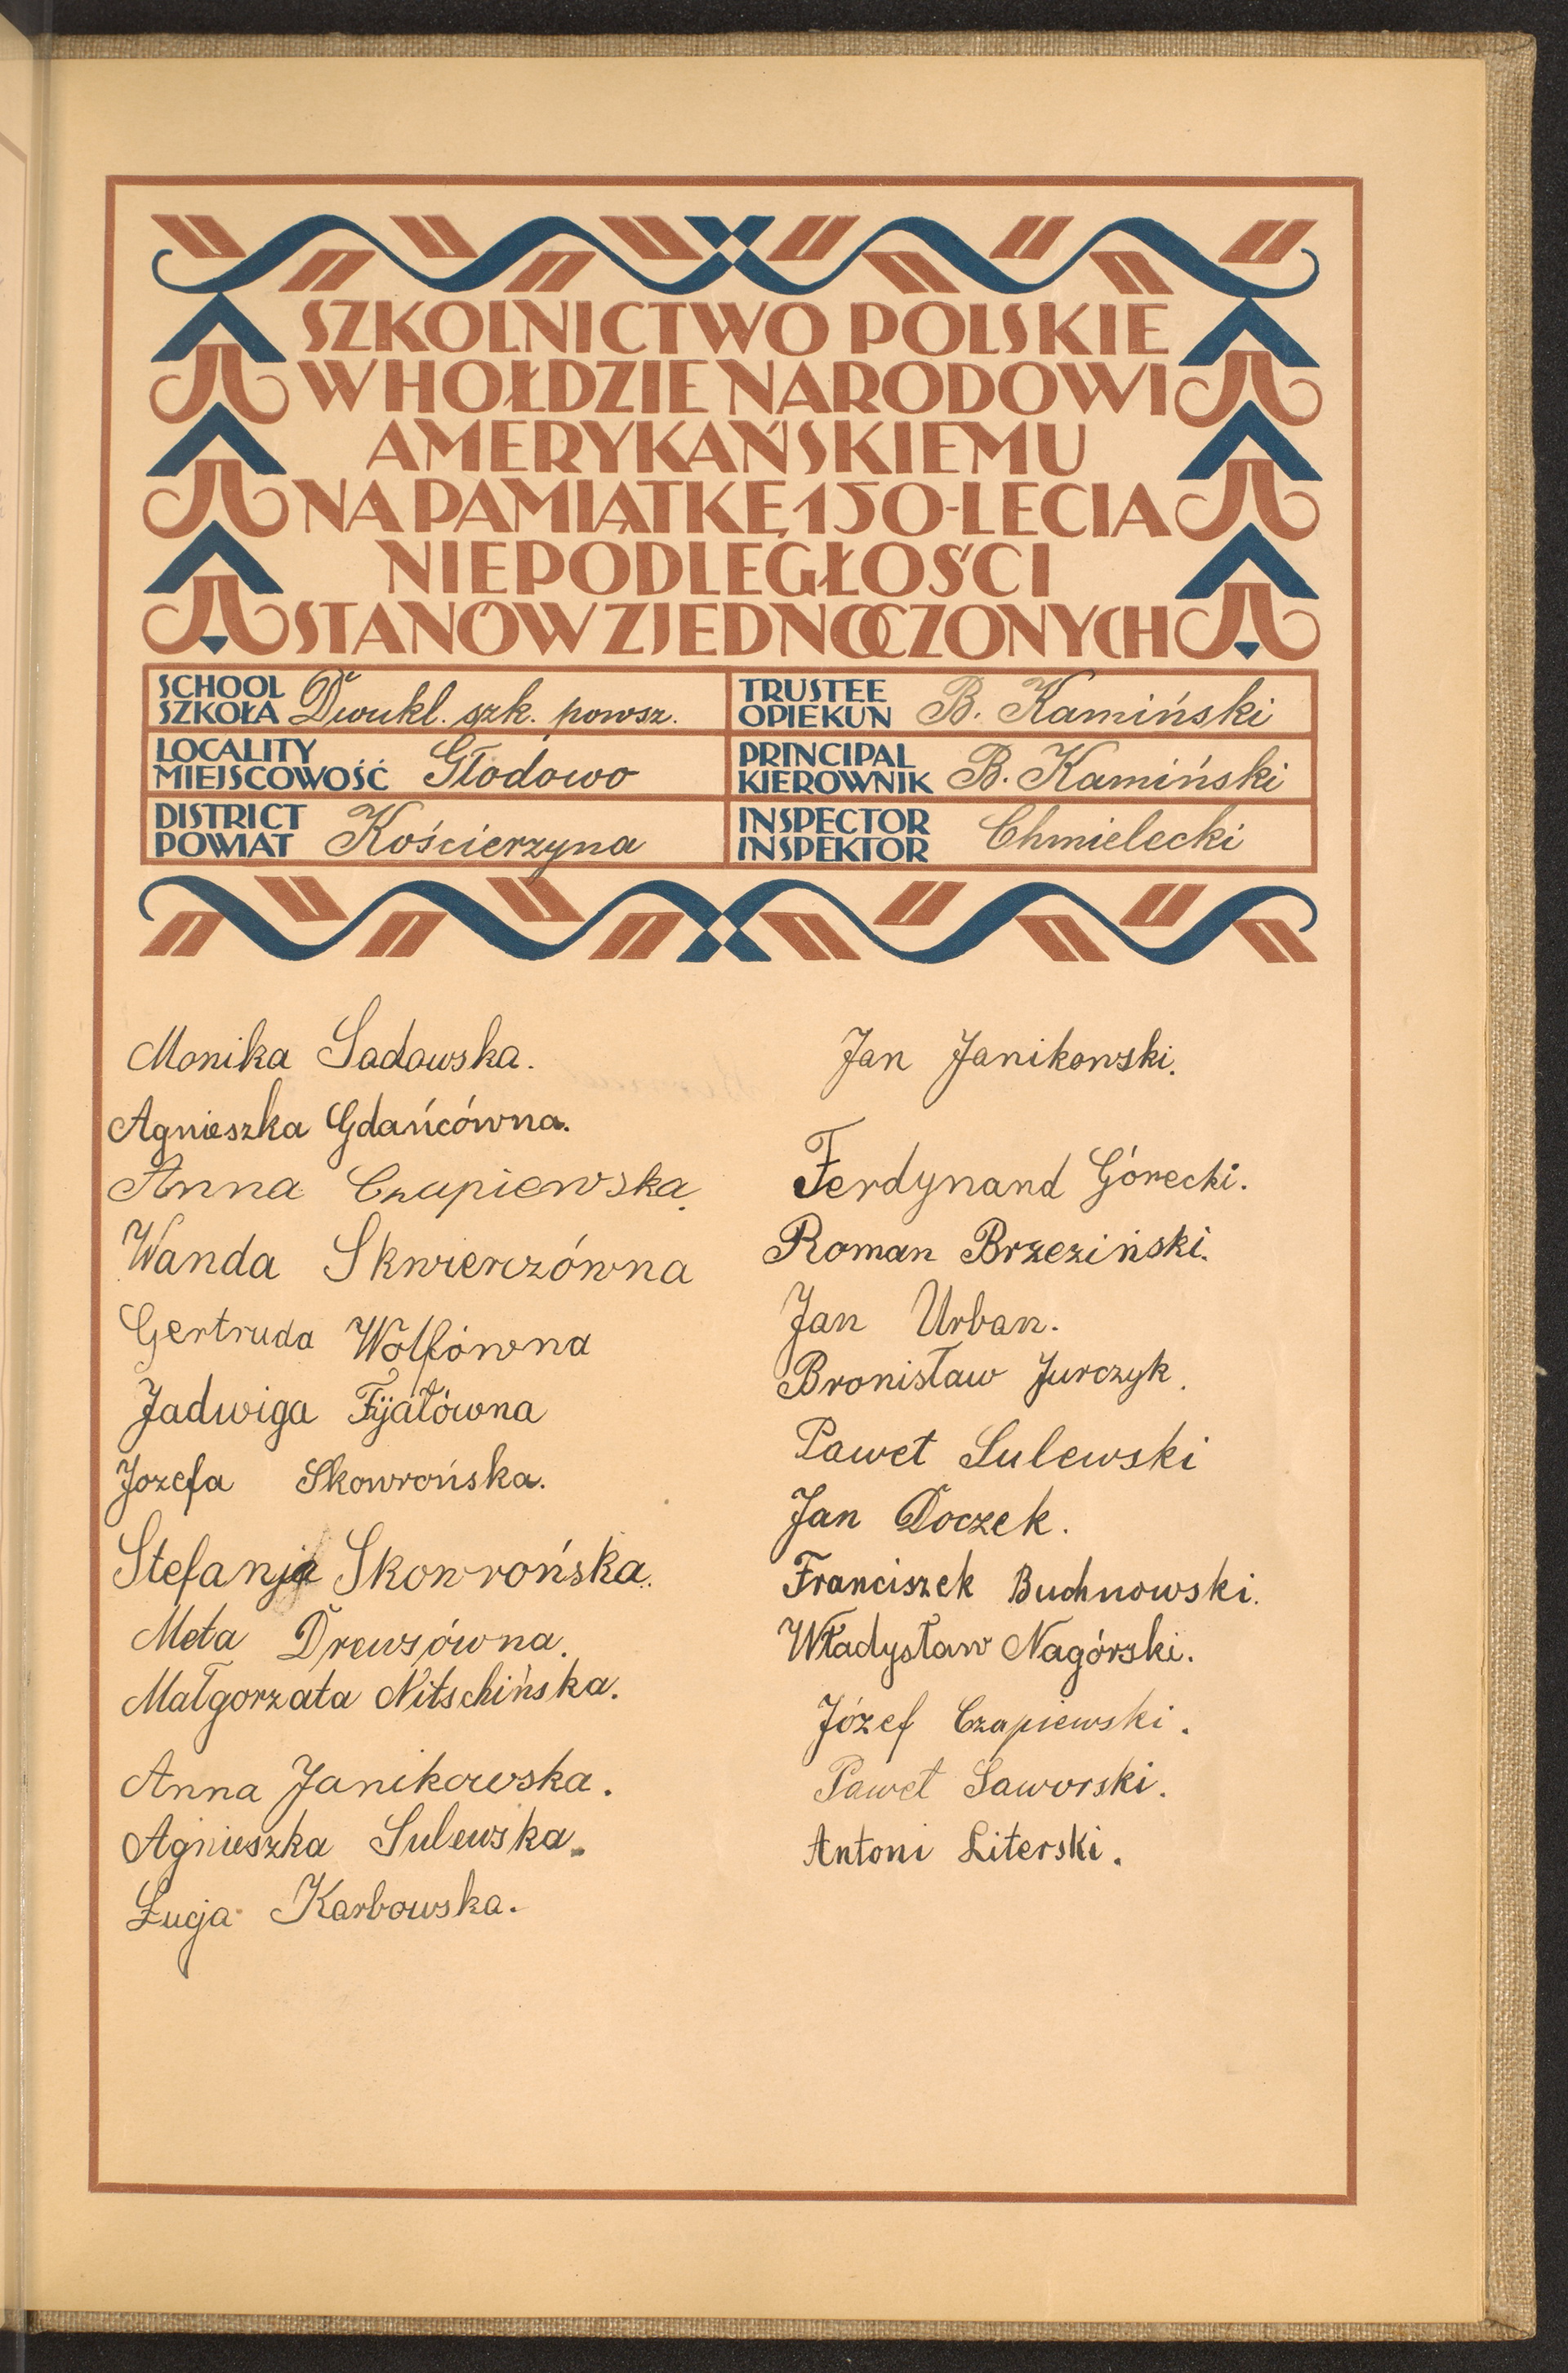 SZKOLNICTWO POLSKIE
W HOŁDZIE NARODOWI
AMERYKAŃSKIEMU
NA PAMIĄTKĘ 150-LECIA
NIEPODLEGŁOŚCI
STANÓW ZJEDNOCZONYCH
SCHOOL
SZKOŁA Dwukl. szk. powsz.
LOCALITY
MIEJSCOWOŚĆ Głodowo
DISTRICT
POWIAT Kościerzyna
TRUSTEE
OPIEKUN B. Kamiński
PRINCIPAL
KIEROWNIK B. Kamiński
INSPECTOR
INSPEKTOR Chmielecki
Monika Sadowska.
Agnieszka Gdańcówna.
Anna Czapiewska.
Wanda Skwierczówna
Gertruda Wolfówna
Jadwiga Fijałówna
Jozefa Skowrońska.
Stefanja Skowrońska.
Meta Drewsówna.
Małgorzata Nitschińska.
Anna Janikowska.
Agnieszka Sulewska.
Łucja Karbowska.
Jan Janikowski.
Ferdynand Górecki.
Roman Brzeziński.
Jan Urban.
Bronisław Jurczyk.
Paweł Sulewski
Jan Doczek.
Franciszek Buchnowski.
Władysław Nagórski.
Józef Czapiewski.
Paweł Saworski.
Antoni Literski.